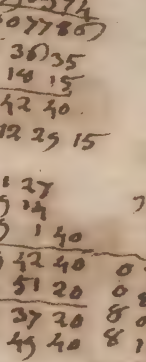 07786)
36)35
18 15
42 40
12 29 15
1 27
9 14
9 1 40
9 42 40 0
51 20 0
37 20 8
49 40 8